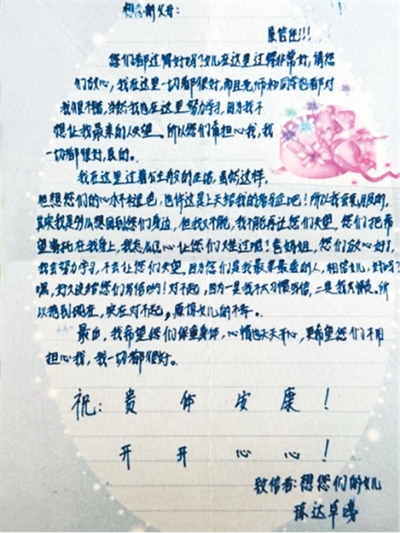 想念的父母:
见信好!!!
您们都过得好吗?女儿在这里过得非常好,请您
们放心,我在这里一切都很好,而且老师和同学也都对
我很不错,当然我也在这里努力学习,因为我不
想让我最亲的人失望。所以您们不用担心我,我
一切都很好,真的。
我在这里过着
的生活,虽然这样,
但想您们的心
吧!所以我会
其实我是多么想回到您们身边,但我不能,我不能再让您们失望,您们把希
望寄托在我身上,我怎么忍心让您们失望呢!爸妈姐,您们放心好了,
我会努力学习,不会让您们失望,因为您们是我最亲最爱的人,相信女儿,好吗?
嘿,好久没给您们写信哟!对不起,因为一是我不太习惯写信,二是我太懒。所
以拖到现在,实在对不起,原谅女儿的不孝。
最后,我希望您们保重身体,心情也天天开心,更希望您们不用
担心我,我一切都很好。
祝:贵体安康!
开开心心!
致信者:想您们的女儿
达草